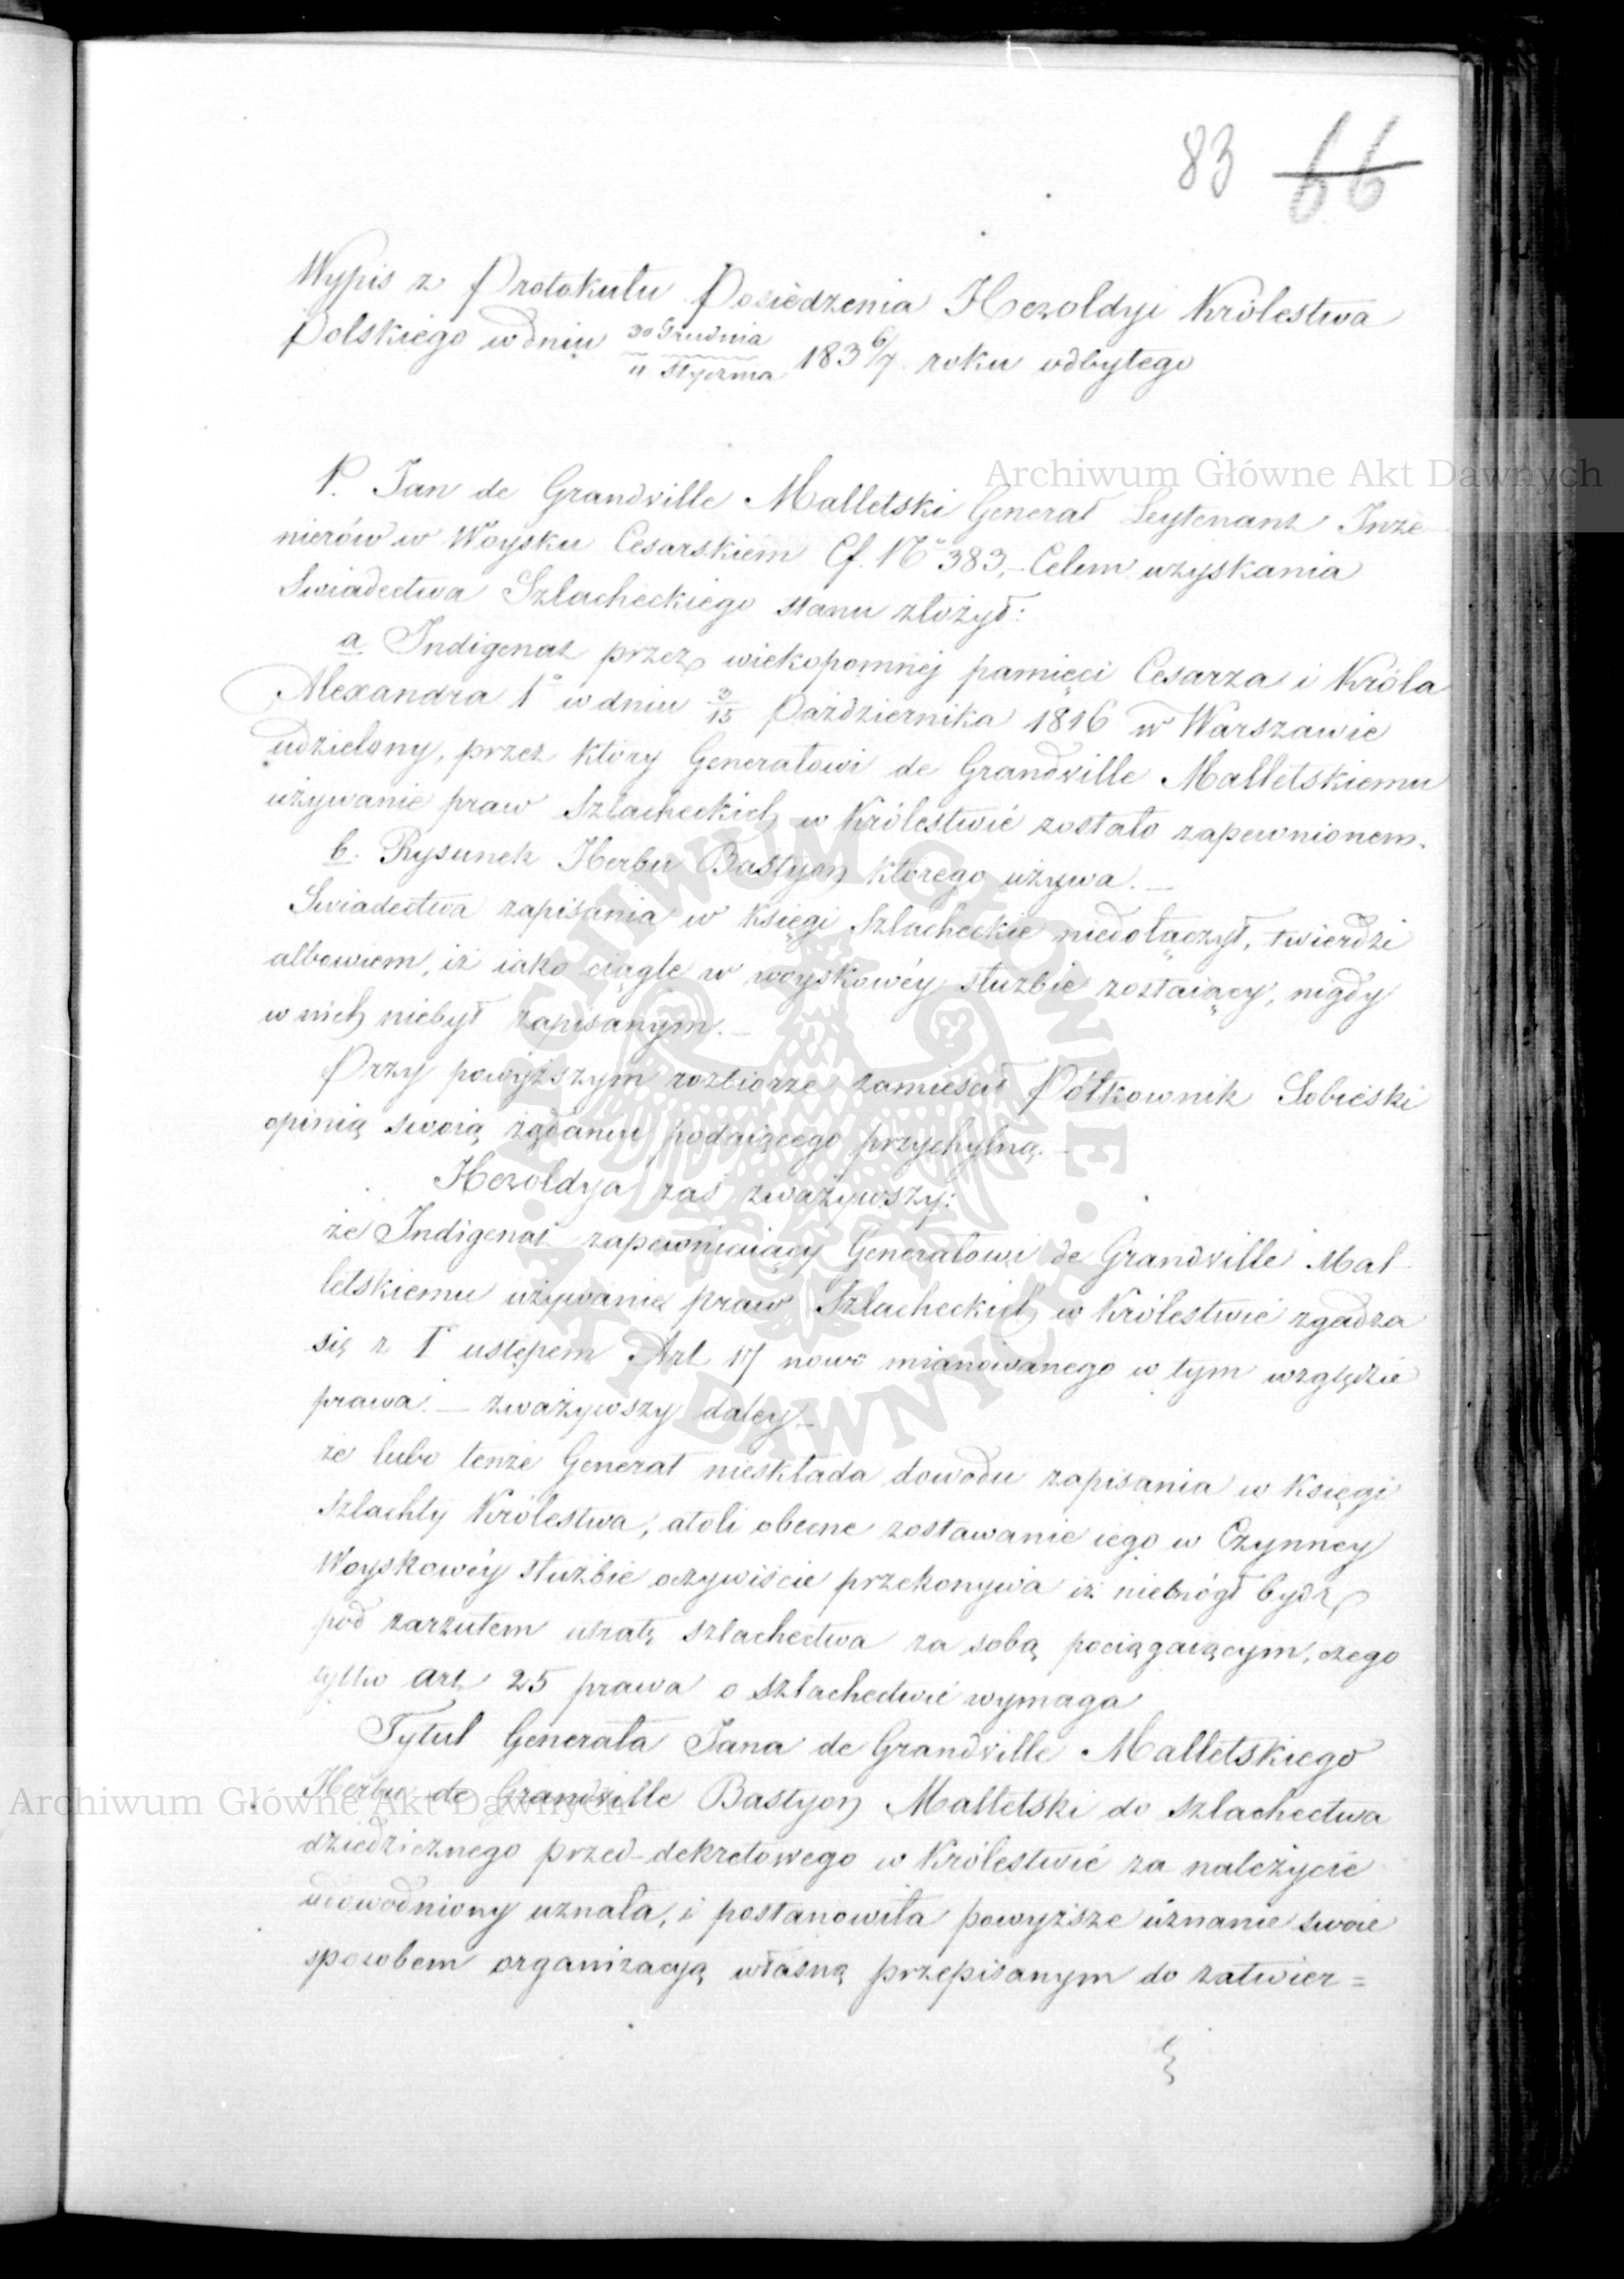 83 66
Wypis z Protokułu Posiedzenia Heroldyi Królestwa
Polskiego w dniu 30 Grudnia / 11 Stycznia 1836/7 roku odbytego
Archiwum Główne Akt Dawnych
P. Jan de Grandville Malletski Generał Leytenant Inże-
nierów w Woysku Cesarskiem Cf. No 383,- Celem uzyskania
Swiadectwa Szlacheckiego stanu złożył:
a Indigenat przez wiekopomnéj pamięci Cesarza i Króla
Alexandra 1o w dniu 3/15 Października 1816 w Warszawie
udzielony, przez który Generałowi de Grandville Malletskiemu
używanie praw Szlacheckich w Królestwie zostało zapewnionem.
b. Rysunek Herbu Bastyon którego używa.—
Swiadectwa zapisania w księgi Szlacheckie niedołączył, twierdzi
albowiem, iż iako ciągle w woyskowéy służbie zostaiący, nigdy
w nich niebył zapisanym.—
Przy powyższym rozbiorze zamieścił Półkownik Sobieski
opinią swoią żądaniu podaiącego przychylną.—
Heroldya zaś zważywszy:
że Indigenat zapewniaiący Generałowi de Grandville Mal-
letskiemu używanie praw Szlacheckich w Królestwie zgadza
się z I ustępem Art 17 nowo mianowanego w tym względzie
prawa.— zważywszy daley—
że lubo tenże Generał nieskłada dowodu zapisania w Księgi
Szlachty Królestwa, atoli obecne zostawanie iego w Czynney
Woyskowéy służbie oczywiście przekonywa iż niemógł bydź
pod zarzutem utratę szlachectwa za sobą pociągaiącym, czego
tylko art 25 prawa o szlachectwie wymaga
Tytuł Generała Jana de Grandville Malletskiego
Herbu de Grandville Bastyon Malletski do szlachectwa
Archiwum Główne Akt Dawnych
dziedzicznego przed-dekretowego w Królestwie za należycie
udowodniony uznała, i postanowiła powyższe uznanie swoie
sposobem organizacyą własną przepisanym do zatwier=
ARCHIWUM GŁÓWNE · AKT DAWNYCH ·